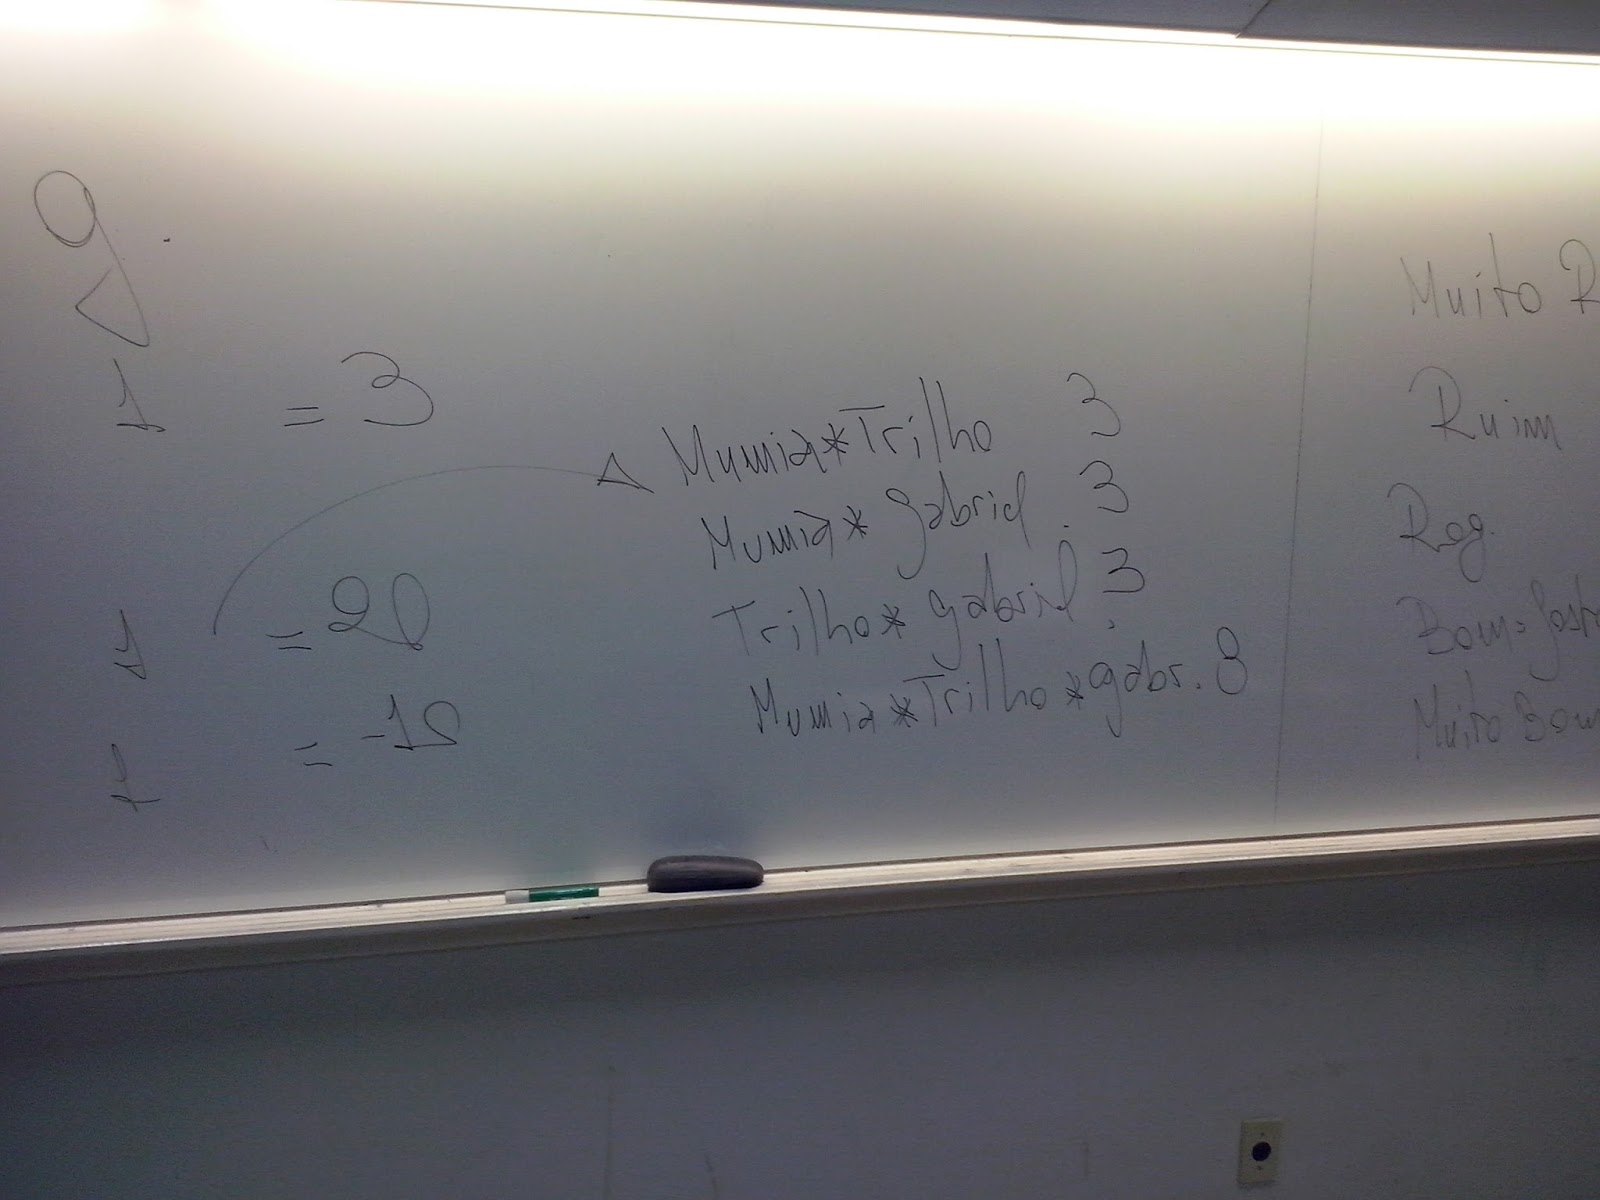 1 = 3
= 20
= -12
Mumia*Trilho 3
Mumia*Gabriel . 3
Trilho*Gabriel : 3
Mumia*Trilho*Gabr. 8
Muito R
Ruim
Reg.
Bom=
Muito Bom